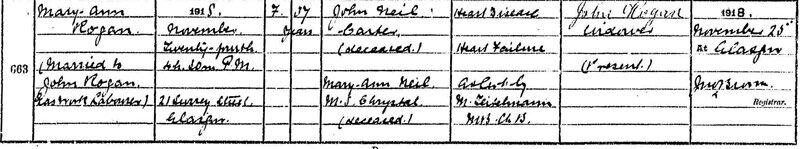 663
Mary-Ann
Hogan
(Married to
John Hogan
Gas Work Labourer)
1918
November
Twenty-fourth
4h. 30m. P.M.
21 Surrey Street
Glasgow
F.
37
Years
John Neil
Carter
(deceased.)
Mary-Ann Neil
M.S. Chrystal
(deceased.)
Heart Disease
Heart Failure
As Cert by
M.
M.B. Ch.B.
John Hogan
Widower
(Present.)
1918.
November 25
At Glasgow
Registrar.